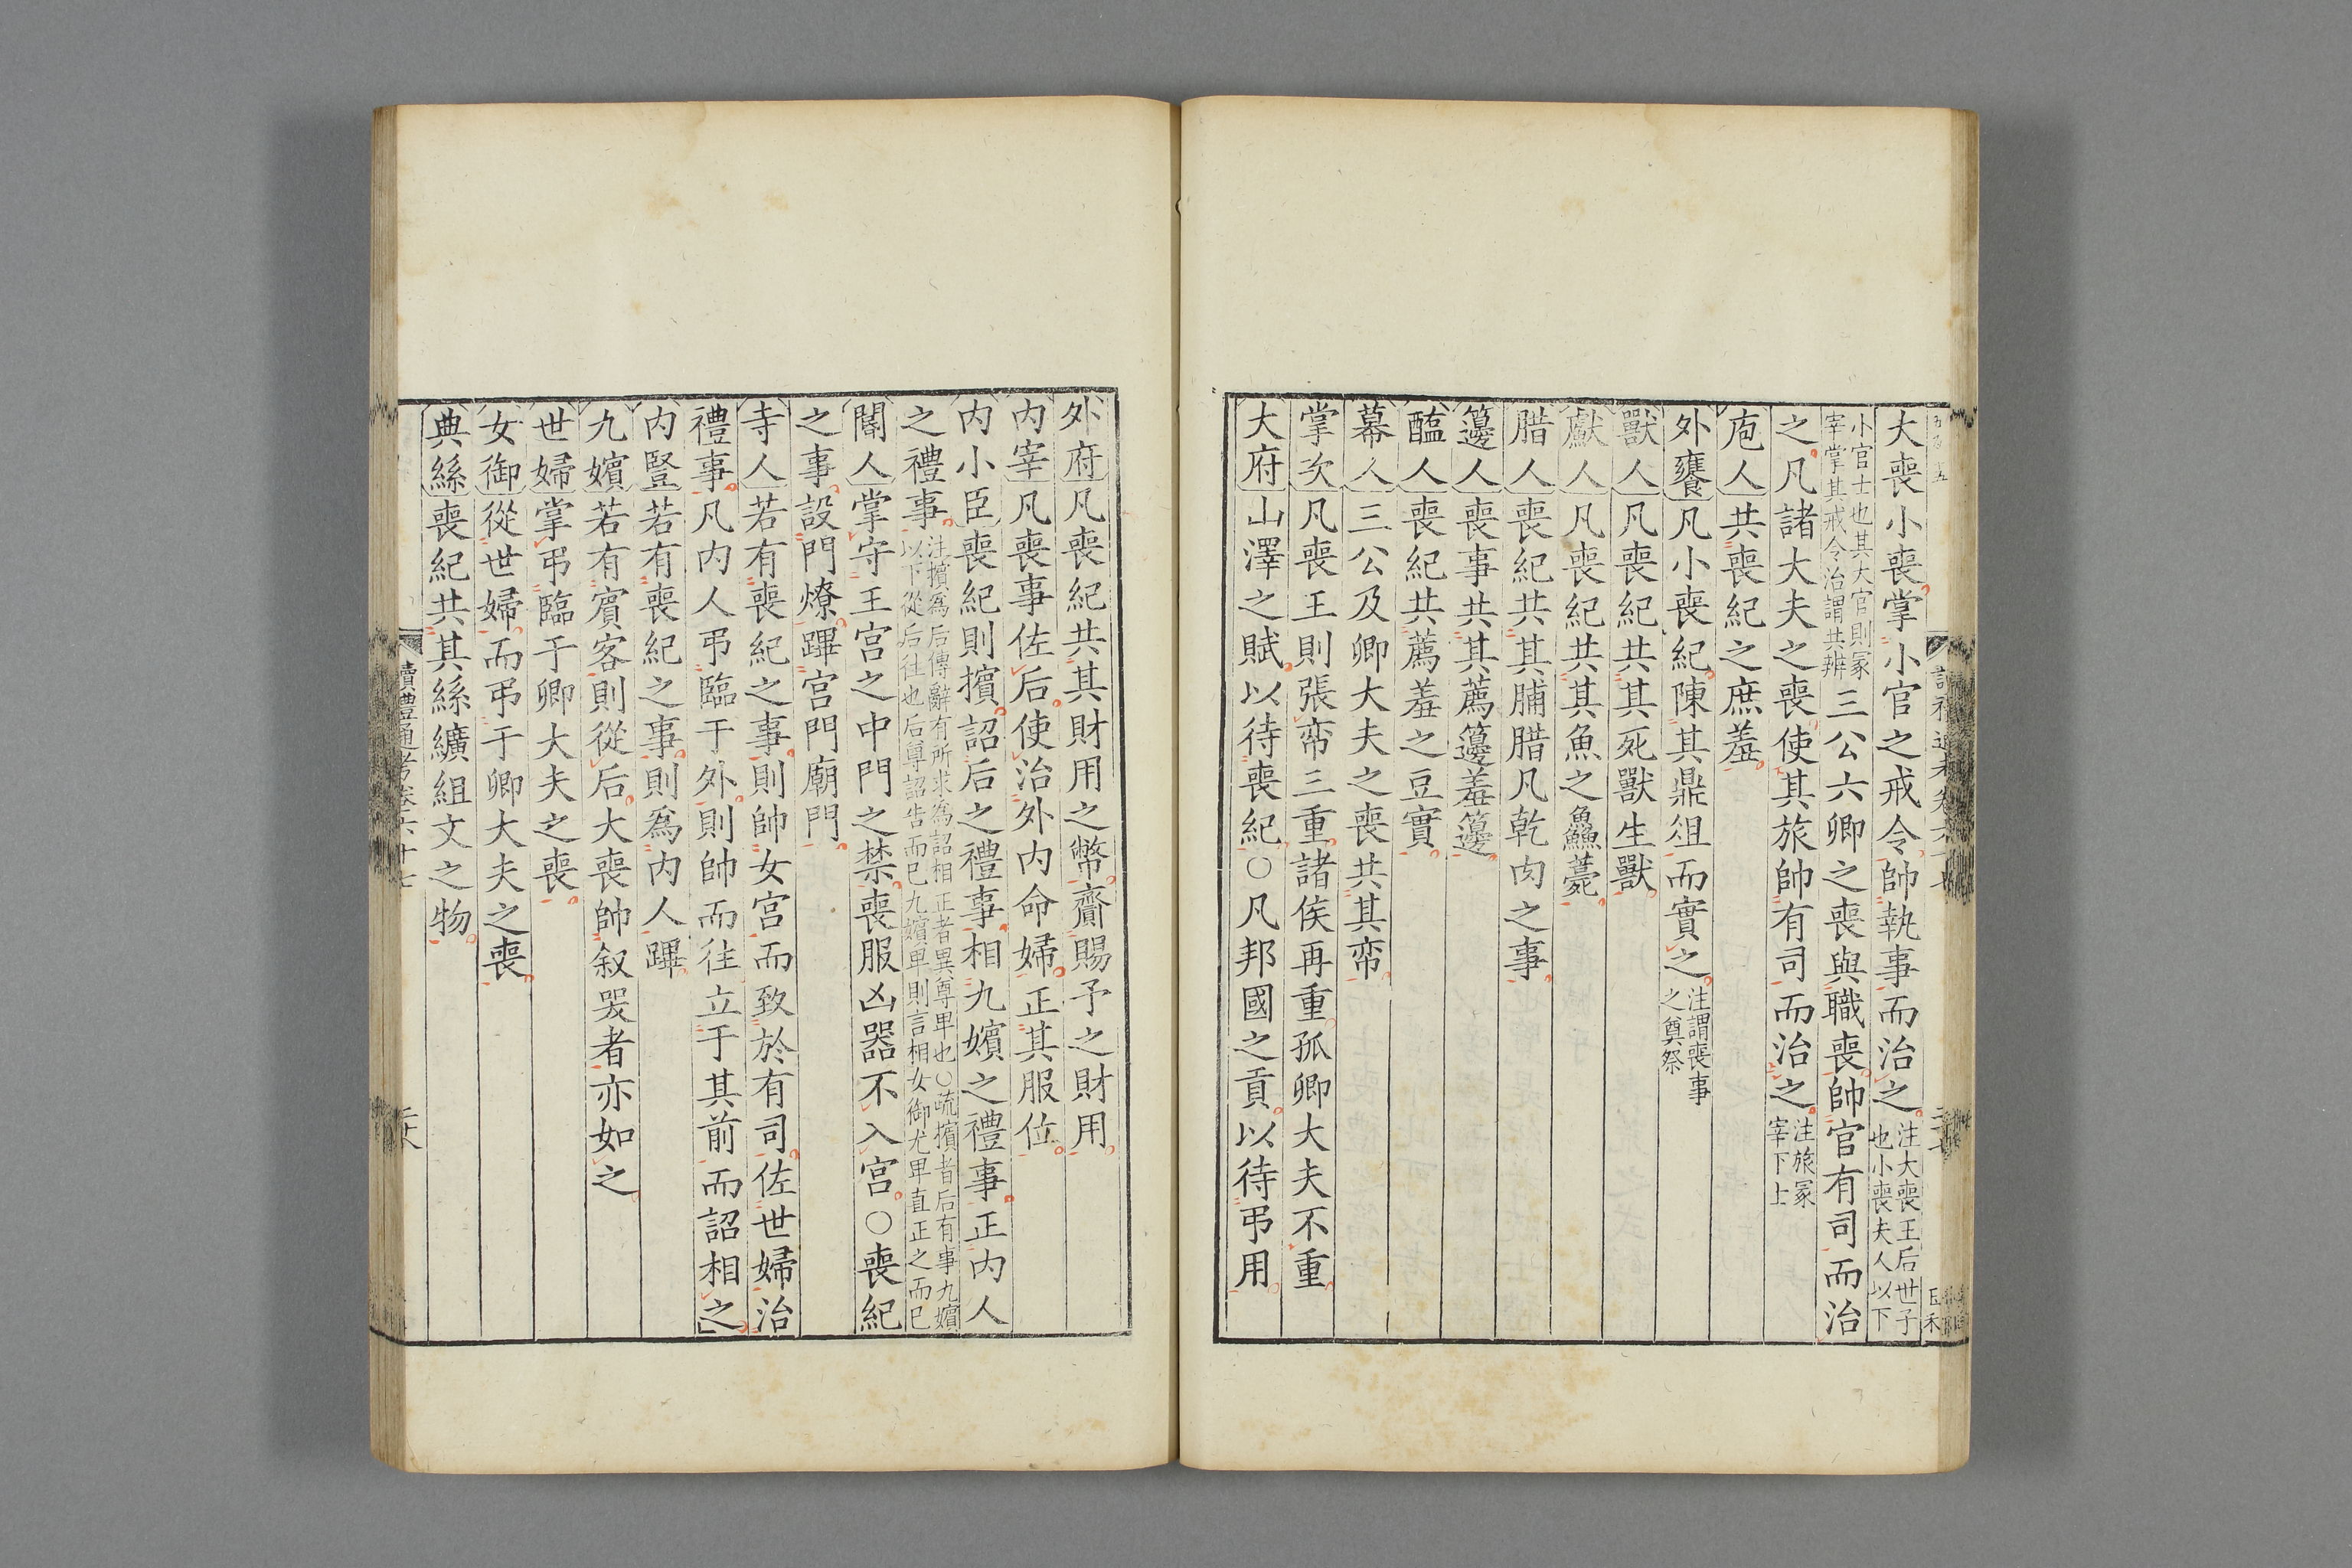 大喪小喪掌小官之戒令帥執事而治之注大喪王后世子也小喪夫人以下
小官士也其大官則冢宰掌其戒令治謂共辨三公六卿之喪與職喪帥官有司而治
之凡諸大夫之喪使其旅帥有司而治之注旅冢宰下士
庖人共喪紀之庶羞
外饔凡小喪紀陳其鼎俎而實之注謂喪事之奠祭
獸人凡喪紀共其死獸生獸
䱷人凡喪紀共其魚之鱻薧
腊人喪紀共其脯腊凡乾肉之事
籩人喪事共其薦籩羞籩
醢人喪紀共薦羞之豆實
幕人三公及卿大夫之喪共其帟
掌次凡喪王則張帟三重諸侯再重孤卿大夫不重
大府山澤之賦以待喪紀○凡邦國之貢以待弔用
外府凡喪紀共其財用之幣齎賜予之財用
内宰凡喪事佐后使治外内命婦正其服位
内小臣喪紀則擯詔后之禮事相九嬪之禮事正内人
之禮事注擯為后傳辭有所求為詔相正者異尊卑也○疏擯者后有事九嬪以下從后往也后尊詔告而已九嬪卑則言相女御尤卑直正之而已
閽人掌守王宫之中門之禁喪服凶器不入宫○喪紀
之事設門燎蹕宫門廟門
寺人若有喪紀之事則帥女宫而致於有司佐世婦治
禮事凡内人弔臨于外則帥而往立于其前而詔相之
内豎若有喪紀之事則為内人蹕
九嬪若有賓客則從后大喪帥叙哭者亦如之
世婦掌弔臨于卿大夫之喪
女御從世婦而弔于卿大夫之喪
典絲喪紀共其絲纊組文之物
讀禮通考卷六十七